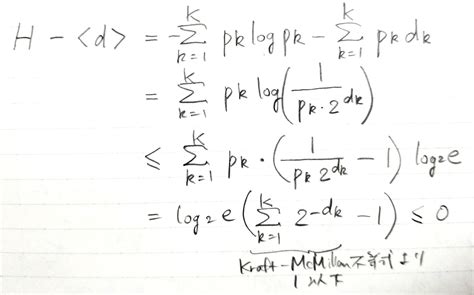 H - <d> = -∑_{k=1}^{K} pk log pk - ∑_{k=1}^{K} pk dk
= ∑_{k=1}^{K} pk log(1/(pk·2^{dk}))
≤ ∑_{k=1}^{K} pk·(1/(pk 2^{dk}) - 1) log₂e
= log₂e (∑_{k=1}^{K} 2^{-dk} - 1) ≤ 0
Kraft-McMillan不等式より
1以下